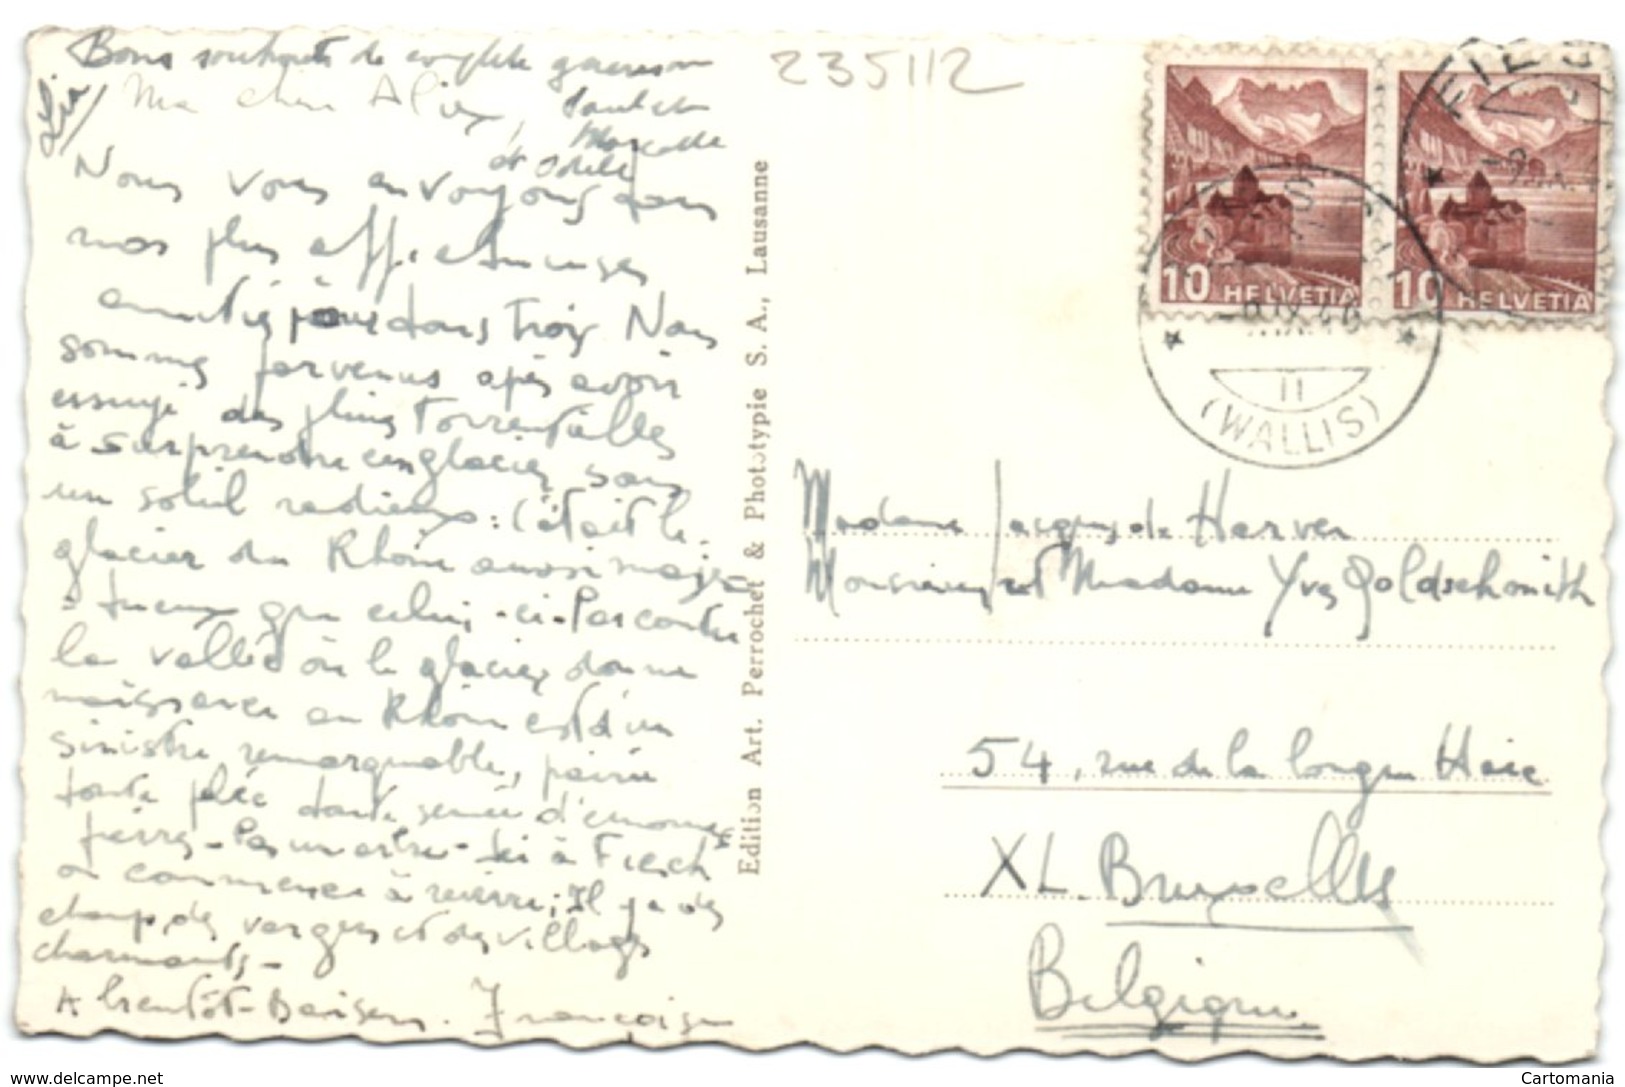 Bons souhaits de complète guérison
235112
Ma chère Alix,
Marcelle
et Odile
Nous vous envoyons tous
nos plus affectueuses
amitiés dans trois Nous
sommes parvenus après avoir
essuyé des pluies torrentielles
à surprendre un glacier sous
un soleil radieux : C'était le
glacier du Rhône aussi majes-
tueux que celui-ci - Par contre
la vallée où le glacier donne
naissance au Rhône est d'un
sinistre remarquable,
toute pelée toute semée d'énormes
pierres - Pas un arbre - Ici à Fiesch
on commence à revivre ; Il y a des
champs, des vergers et des villages
charmants -
A bientôt - Baisers. Françoise
Edition Art. Perrochet & Phototypie S. A., Lausanne
10 HELVETIA
10 HELVETIA
FIESCH
II
(WALLIS)
Madame Jacques de Harven
Monsieur et Madame Yves Goldschmidt
54, rue de la longue Haie
XL. Bruxelles
Belgique
www.delcampe.net
Cartomania